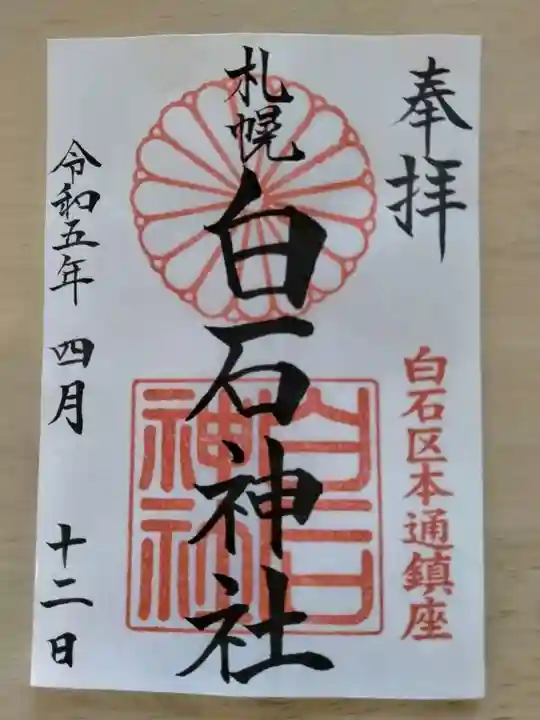 奉拝
白石区本通鎮座
札幌
白石神社
白石
神社
令和五年 四月 十二日